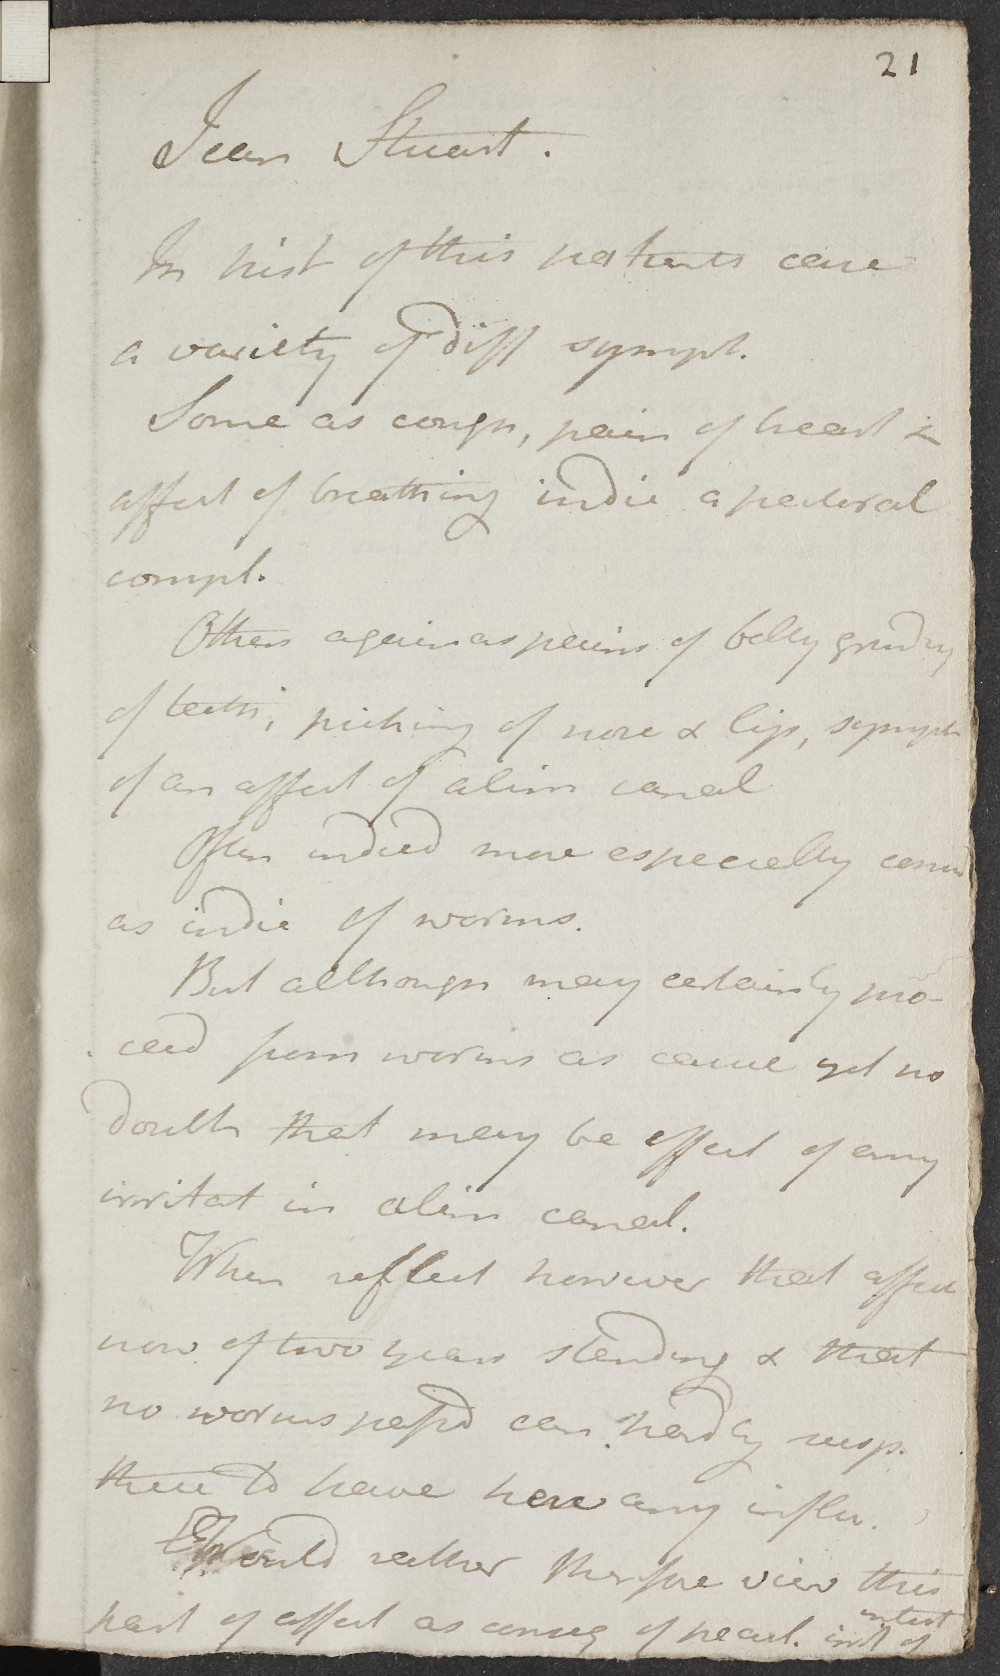 21
Jean Stuart.
In hist of this patients case
a variety of diff sympt.
Some as cough, pain of heart &
affect of breathing indic a pectoral
compl.
Others again as pains of belly grindg
of teeth, picking of nose & lip, sympt
of an affect of alim canal
Often indeed more especially consid
as indic of worms.
But although may certainly pro-
ceed from worms as cause yet no
doubt that may be effect of any
irritat in alim canal.
When reflect however that affect
now of two years standing & that
no worms passd can hardly susp.
these to have here any influ.
Would rather therefore view this
part of affect as conseq of pecul. irrit of
intest